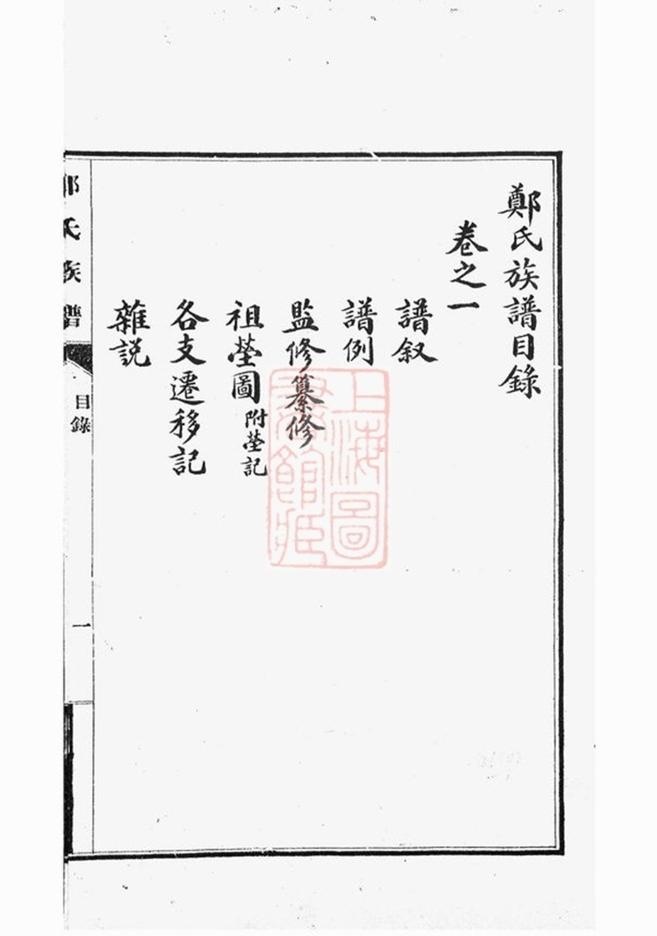 鄭氏族譜目錄
卷之一
譜叙
譜例
監修纂修
祖塋圖 附塋記
各支遷移記
雜説
鄭氏族譜
目錄
一
上海圖
書館藏